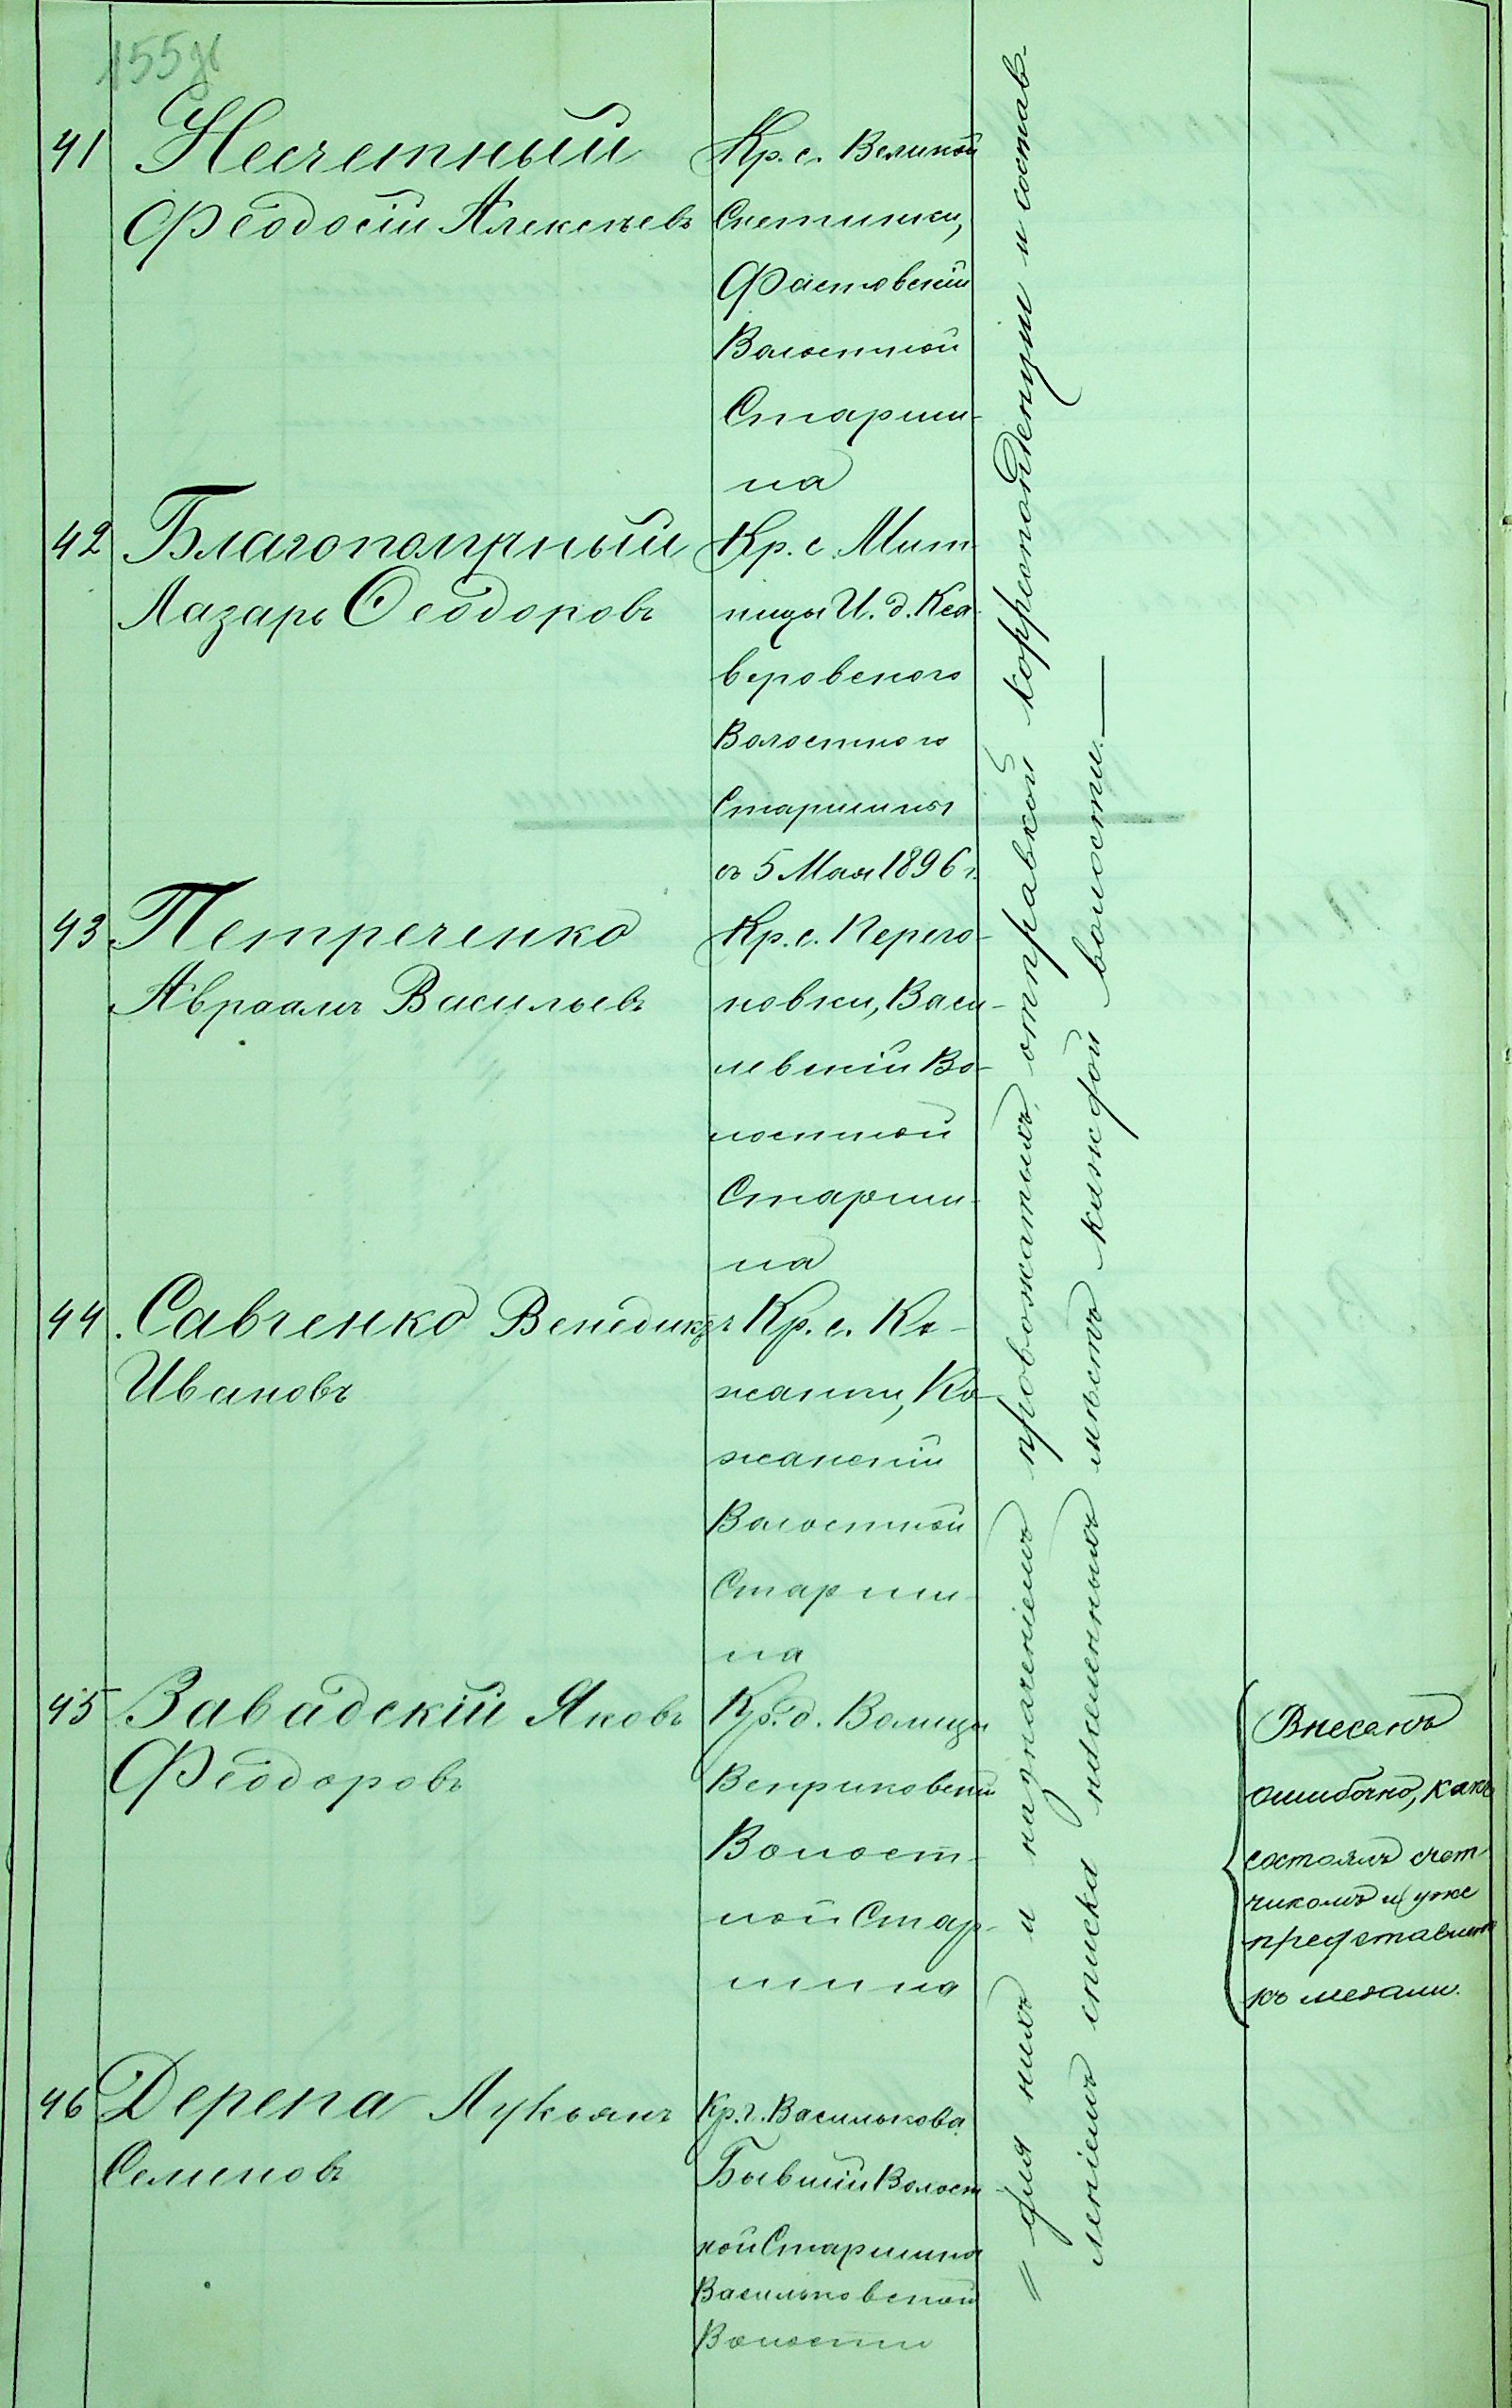 155
41
Несчетный
Феодосій Алексѣевъ
Кр. с. Великой
Снетинки,
Фастовскій
Волостной
Старши-
на
42
Благополучный
Лазарь Ѳеодоровъ
Кр. с. Мит-
ницы И. д. Кса-
веровского
Волостного
Старшины
съ 5 Мая 1896 г.
43
Петреченко
Авраамъ Васильевъ
Кр. с. Перего-
новки, Васи-
левскій Во-
лостной
Старши-
на
44
Савченко Венедиктъ
Ивановъ
Кр. с. Ко-
жанки, Ко-
жанскій
Волостной
Старши-
на
45
Завадскій Яковъ
Феодоровъ
Кр. д. Волицы
Веприковскій
Волост-
ной Стар-
шина
Внесенъ
ошибочно, какъ
состоялъ счет-
чикомъ и уже
представленъ
къ медали.
46
Дерепа Лукьянъ
Семеновъ
Кр. г. Василькова
Бывшій Волост-
ной Старшина
Васильковской
Волости
" для нихъ и назначеніемъ провожатыхъ, отправкой корреспонденціи и состав-
леніемъ списка населенныхъ мѣстъ каждой волости.